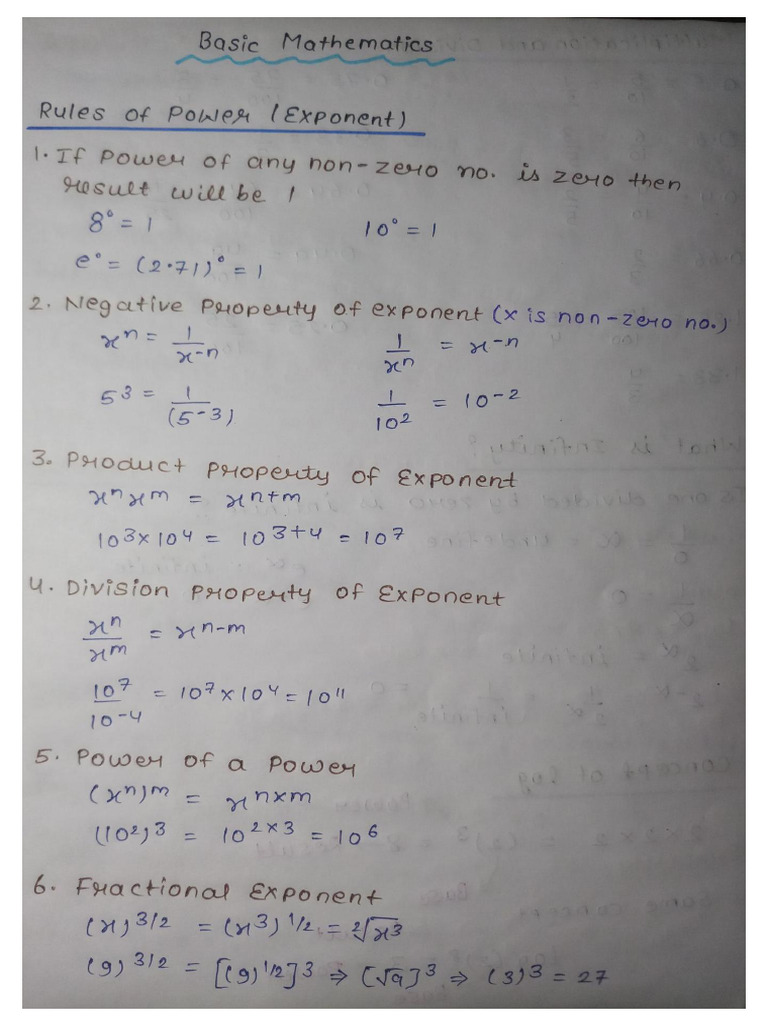 Basic Mathematics
Rules of Power (Exponent)
1. If Power of any non-zero no. is zero then
result will be 1
8⁰ = 1 10⁰ = 1
e⁰ = (2.71)⁰ = 1
2. Negative Property of exponent (x is non-zero no.)
xⁿ = 1/x⁻ⁿ 1/xⁿ = x⁻ⁿ
5³ = 1/(5⁻³) 1/10² = 10⁻²
3. Product Property of Exponent
xⁿxᵐ = xⁿ⁺ᵐ
10³×10⁴ = 10³⁺⁴ = 10⁷
4. Division Property of Exponent
xⁿ/xᵐ = xⁿ⁻ᵐ
10⁷/10⁻⁴ = 10⁷×10⁴ = 10¹¹
5. Power of a Power
(xⁿ)ᵐ = xⁿˣᵐ
(10²)³ = 10²ˣ³ = 10⁶
6. Fractional Exponent
(x)^3/2 = (x³)^1/2 = ²√x³
(9)^3/2 = [(9)^1/2]³ ⇒ [√9]³ ⇒ (3)³ = 27